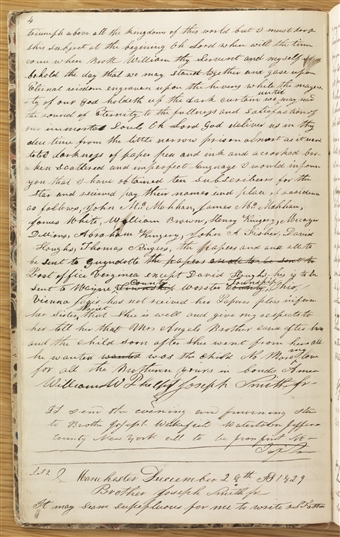 4
triumph above all the kingdoms of this world but I must drop
this subject at the beginning Oh Lord when will the time
come when Brothe William thy Servent and myself
behold the day that we may stand together and gase upon
Eternal wisdom engraven upon the hevens while the magesty
ty of our God holdeth up the dark curtain until we may read
the round of Eternity to the fullness and satisfaction of
our immortal souls Oh Lord God deliver us in thy
due time from the little narrow prison almost as it were
totel darkness of paper pen and ink and a crooked broken
ken scattered and imperfect language I would inform
you that I have obtained ten subscribers for the
star and received pay their names and place of residence
as follows, John McMahhan, James McMahhan,
James White, William Brown, Henry Kingery, Micayer
Dillions, Abraham Kingery, John A Fisher, David
Houghs, Thomas Singers, the papers and and all to
be sent to Guyndotte the papers
Post office Verginea except David Houghs, his is to be
sent to Wayne County Township Wooster Ohio,
Vienna Jaqis has not received her Papers please inform
her sister that She is well and give my respects to
her tell her that Mrs Angels Brother came after her
and the child soon after she went from here all
he wanted was the child No More
for all the Brethren yours in bonds Amen
William W Phelps Joseph Smith Jr
to Brothe Joseph Wakefiet Watertown Jefferson
County New York all to be
Manchester December 28th 1829
Brother Joseph Smith Jr
It may seam superfluous for me to write as Father